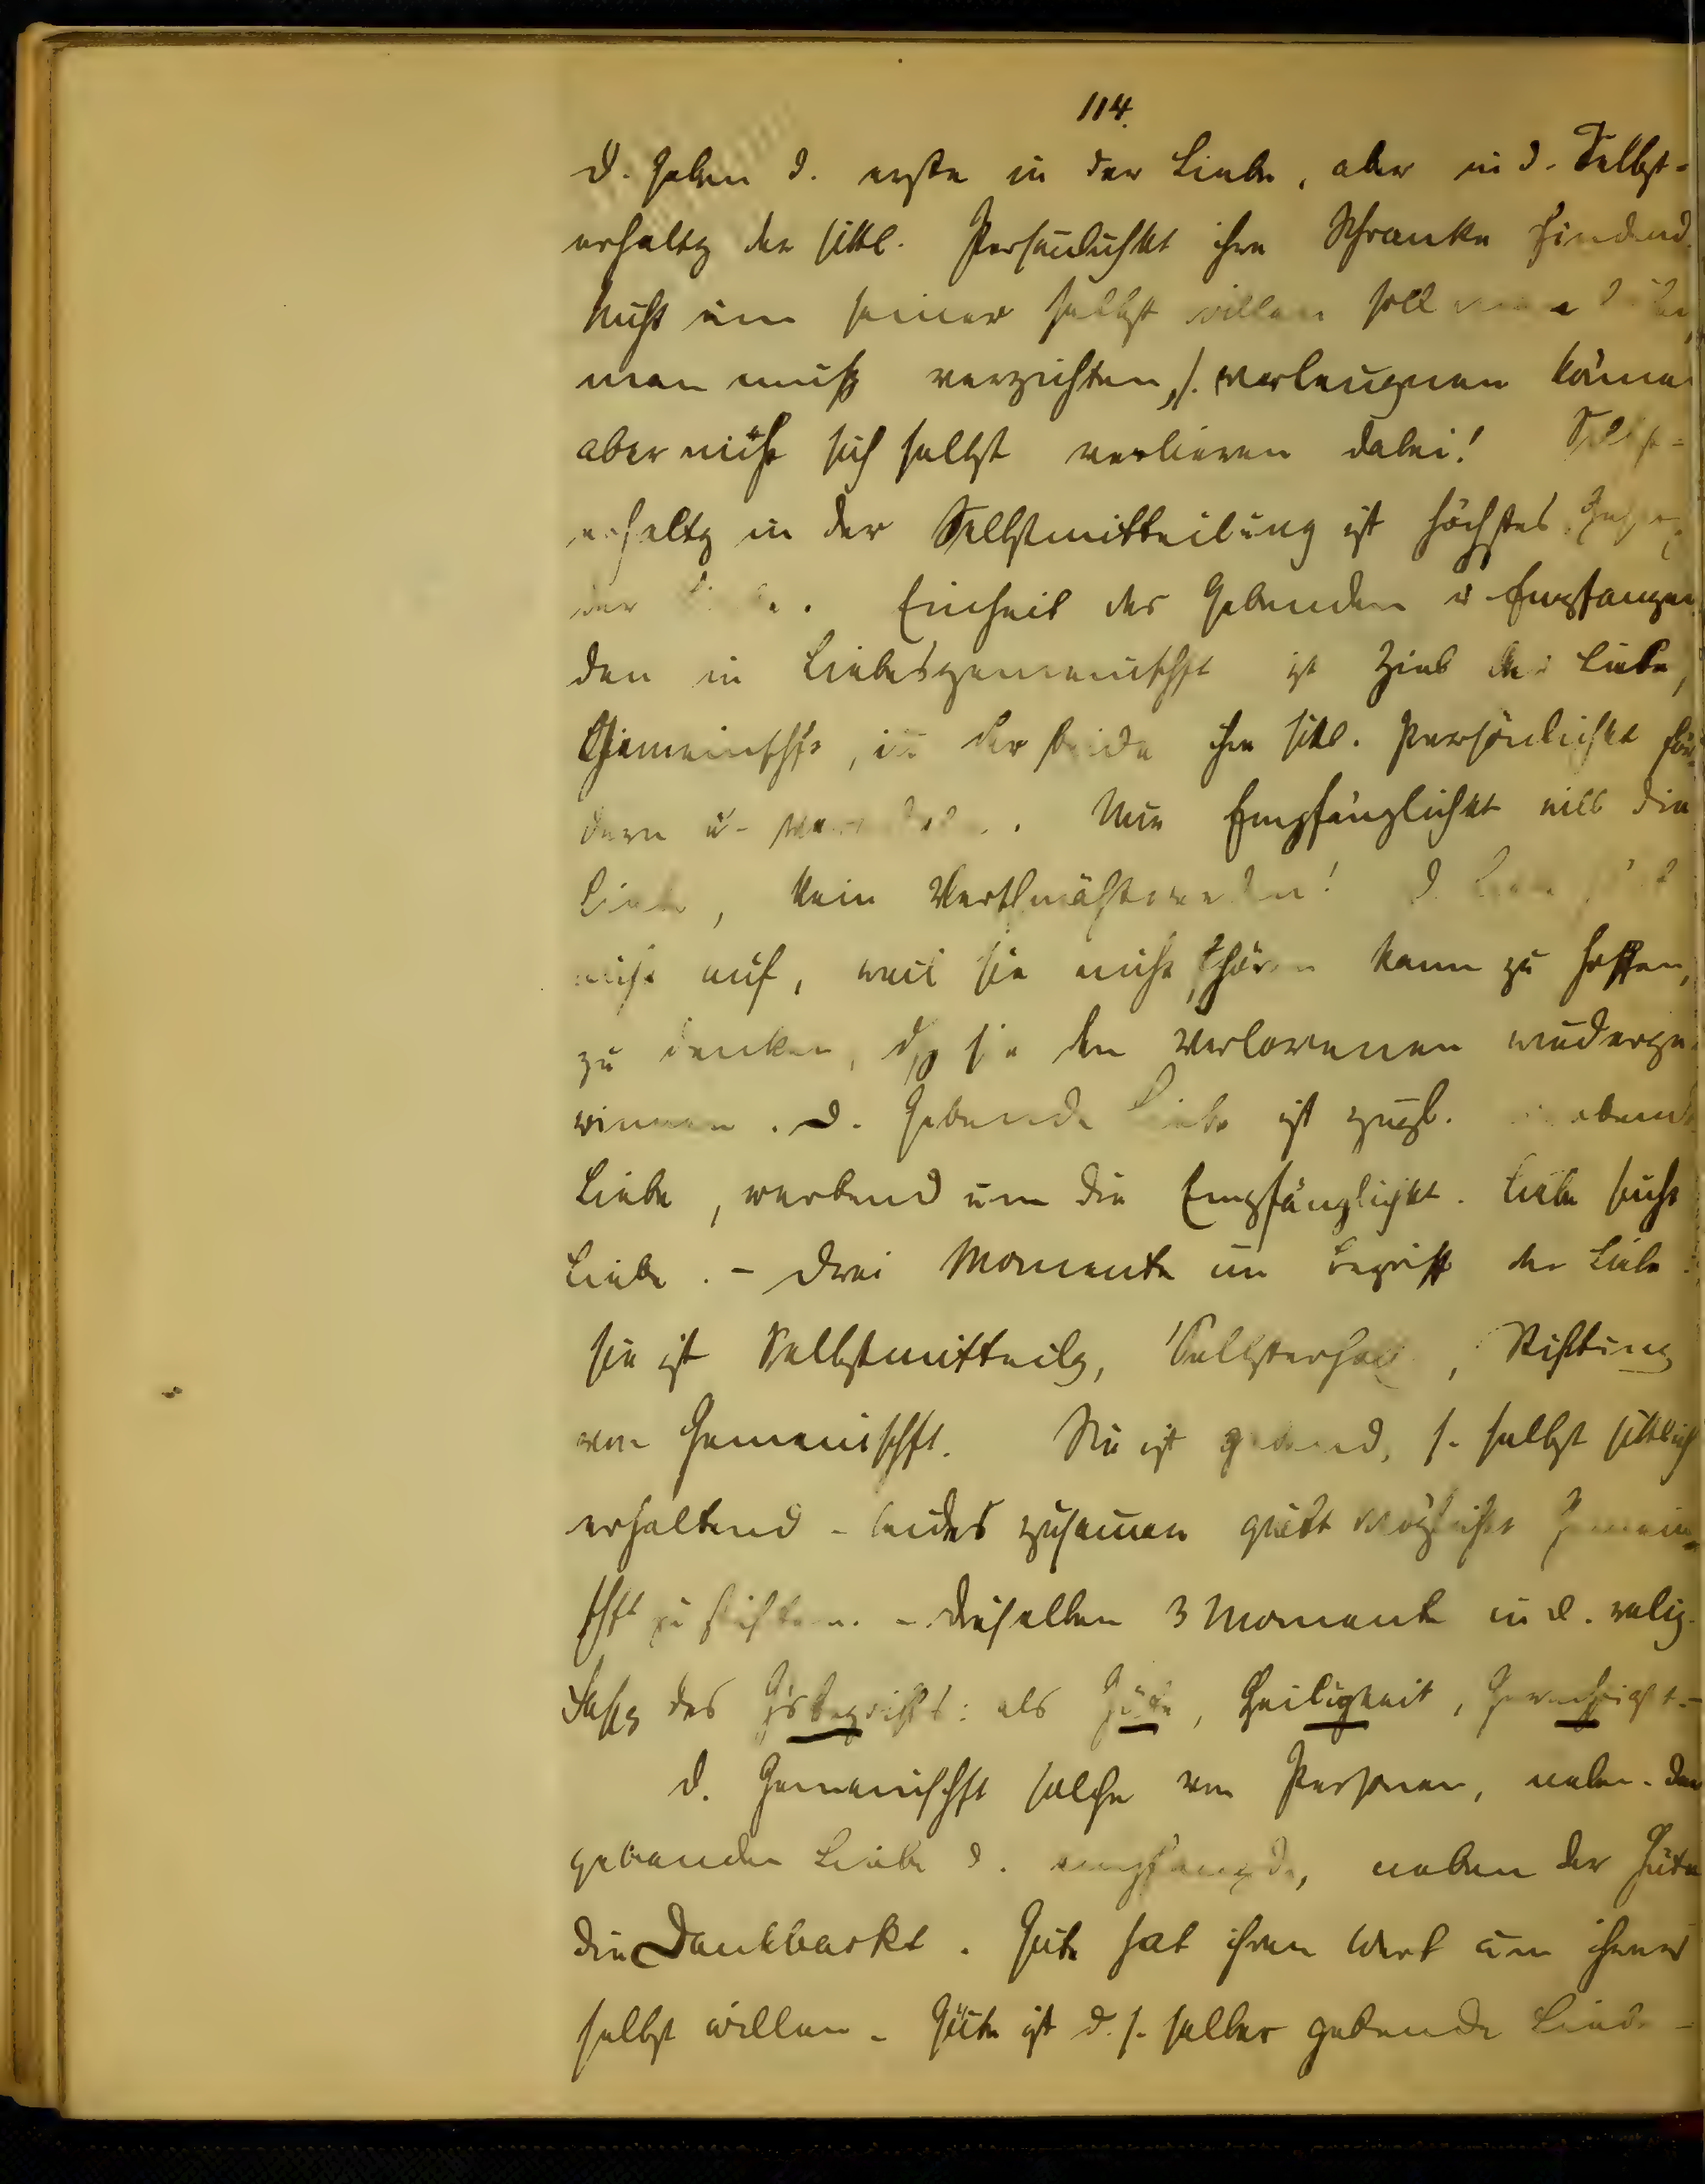 114.
D. Geben d. erste in der Liebe, aber in d. Selbst-
erhaltg der sittl. Persönlichkt ihre Schranke findend.
Nicht um seiner selbst willen soll
man muß verzichten, s. verleugnen könne
aber nicht sich selbst verlieren dabei! Selbst-
erhaltg in der Selbstmitteilung ist höchstes
der Liebe. Einheit des Gebenden u Empfangen
den in Liebesgemeinschft ist Ziel der Liebe,
Gemeinschft, in der beide ihre sittl. Persönlichkt för-
dern u. Nur Empfänglichkt will die
Liebe, kein Verschmähtwerden! D. Liebe
nicht auf, weil sie nicht aufhören kann zu hoffen,
zu denken, dß sie den Verlorenen wiederge-
winnen. D. gebende Liebe ist zugl.
Liebe, werbend um die Empfänglichkt. Liebe sucht
Liebe. - Drei Momente im Begriff der Liebe:
sie ist Selbstmitteilg, Selbsterhalt, Stiftung
von Gemeinschft. Sie ist gebend, s. selbst sittlich
erhaltend - beides zusammen Gemein-
schft zu stiften. - Dieselben 3 Momente in d. relig.
Fassg des Gsbegriffs: als Güte, Heiligkeit, Gerechtigkt.-
D. Gemeinschft solche von Personen, neben der
gebenden Liebe d. empfangde, neben der Güte
die Dankbarkt. Güte hat ihren Wert um ihrer
selbst willen. Güte ist d. s. selber gebende Liebe -